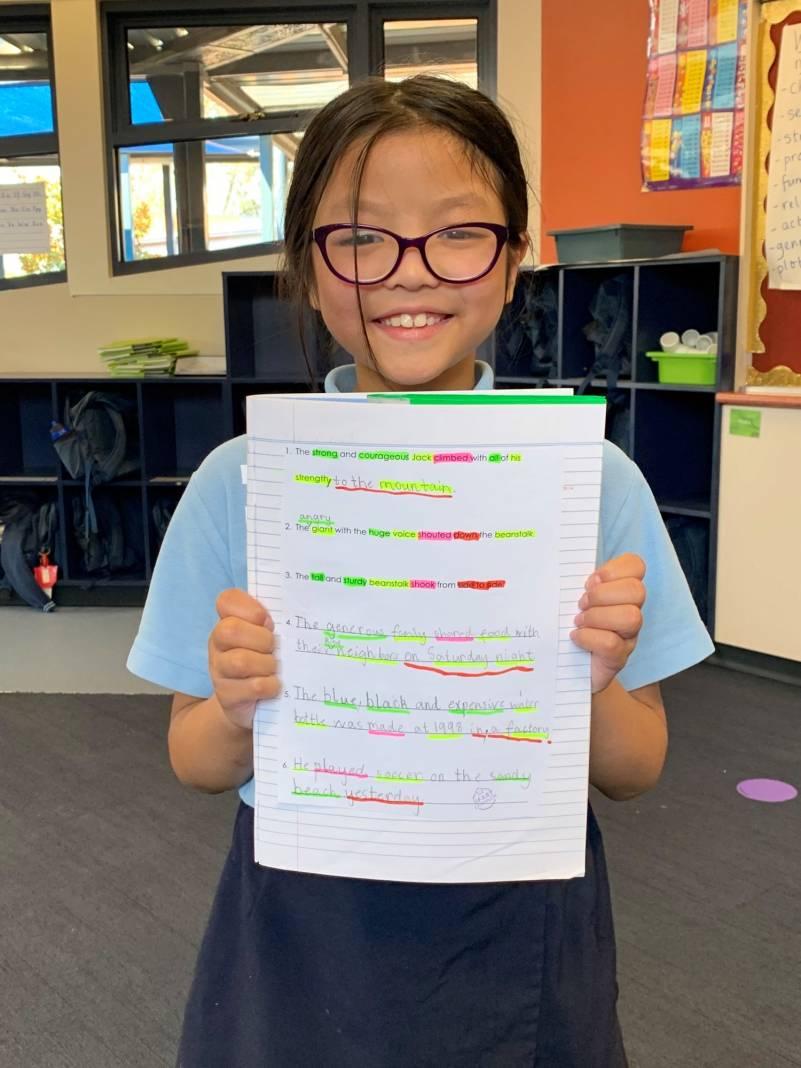 1. The strong and courageous Jack climbed with all of his
strength to the mountain.
angry
2. The giant with the huge voice shouted down the beanstalk.
3. The tall and sturdy beanstalk shook from side to side.
4. The generous family shared food with
their neighbors on Saturday night
5. The blue, black and expensive water
bottle was made at 1998 in a factory.
6. He played soccer on the sandy
beach yesterday